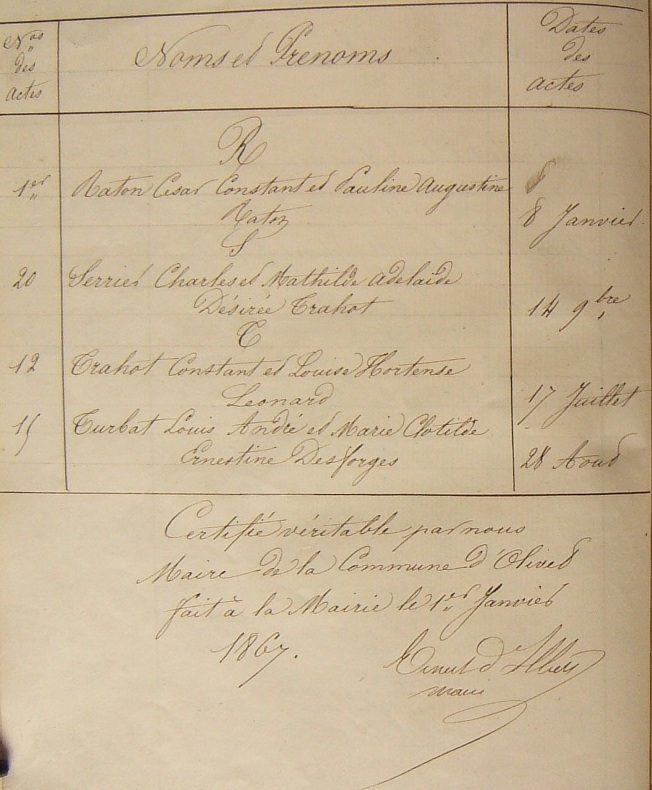 Nos des actes
Noms et Prenoms
Dates des actes
R
1er Raton Cesar Constant et Pauline Augustine
Raton 8 Janvier
S
20 Serrier Charles et Mathilde Adelaide
Désirée Trahot 14 9bre
T
12 Trahot Constant et Louise Hortense
Leonard 17 Juillet
15 Turbat Louis André et Marie Clotilde
Ernestine Desforges 28 Aout
Certifié véritable par nous
Maire de la Commune d'Olivet
fait à la Mairie le 1er Janvier
1867.
maire